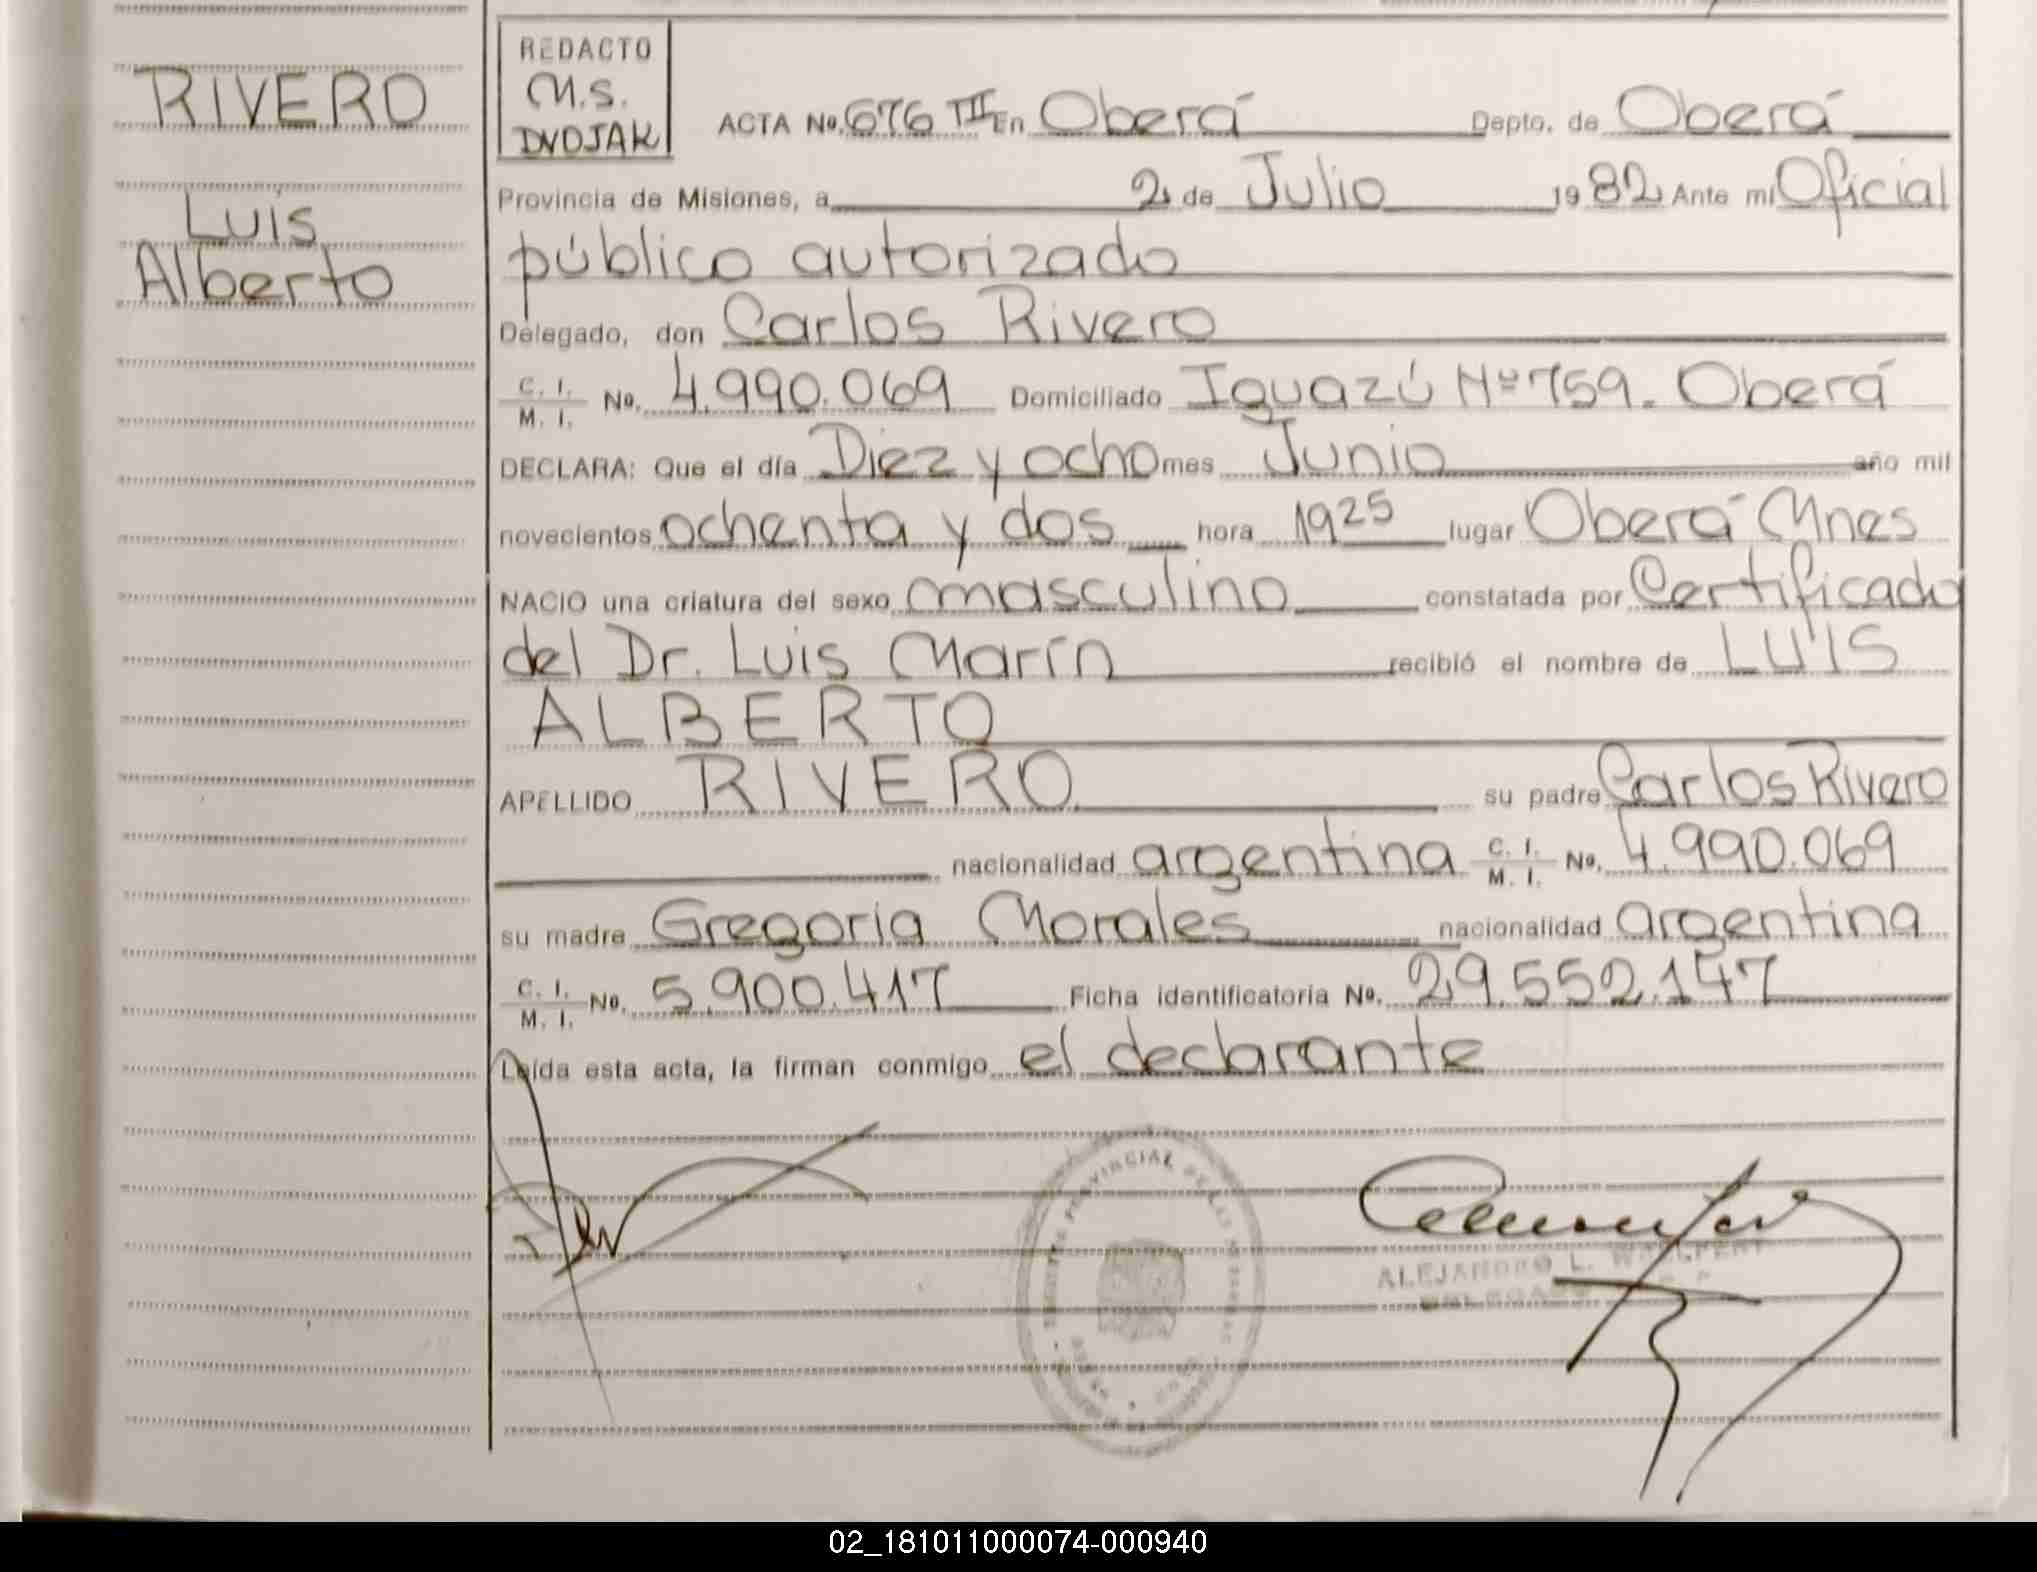 RIVERO
Luis
Alberto
REDACTO
M.S.
DVOJAK
ACTA No. 676 TII En Oberá Depto. de Oberá
Provincia de Misiones, a 2 de Julio 1982 Ante mi Oficial
público autorizado
Delegado, don Carlos Rivero
C. I. / M. I. No. 4.990.069 Domiciliado Iguazú Nº 759. Oberá
DECLARA: Que el día Diez y ocho mes Junio año mil
novecientos ochenta y dos hora 1925 lugar Oberá Mnes
NACIO una criatura del sexo masculino constatada por Certificado
del Dr. Luis Marín recibió el nombre de LUIS
ALBERTO
APELLIDO RIVERO su padre Carlos Rivero
nacionalidad argentina C. I. / M. I. No. 4.990.069
su madre Gregoria Morales nacionalidad argentina
C. I. / M. I. No. 5.900.417 Ficha identificatoria No. 29.552.147
Leída esta acta, la firman conmigo el declarante
PROVINCIAL DE LAS
ALEJANDRO L.
02_181011000074-000940